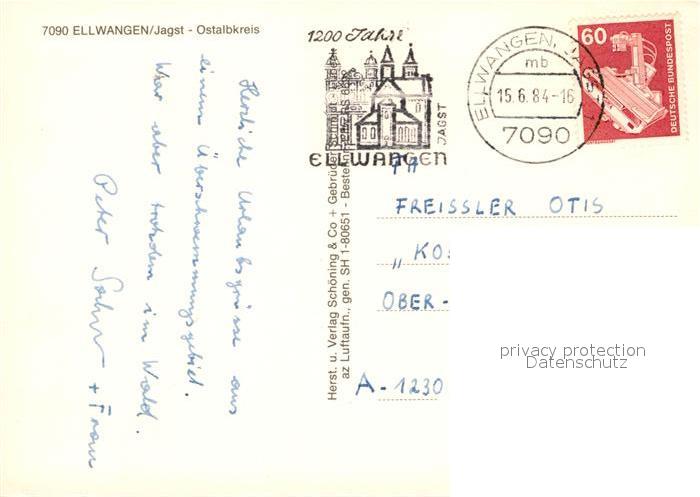 7090 ELLWANGEN/Jagst - Ostalbkreis
Herzliche Urlaubsgrüsse aus
einem Überschwemmungsgebiet.
War aber trotzdem im Wald.
Peter + Frau
Herst. u. Verlag Schöning & Co + Gebrüder Schmidt
az Luftaufn., gen. SH 1-80651 - Bestell
1200 Jahre
ELLWANGEN
JAGST
ELLWANGEN, JAGST 1
mb
15.6.84-16
7090
60
DEUTSCHE BUNDESPOST
FA
FREISSLER OTIS
„KO
OBER-
A-1230
privacy protection
Datenschutz